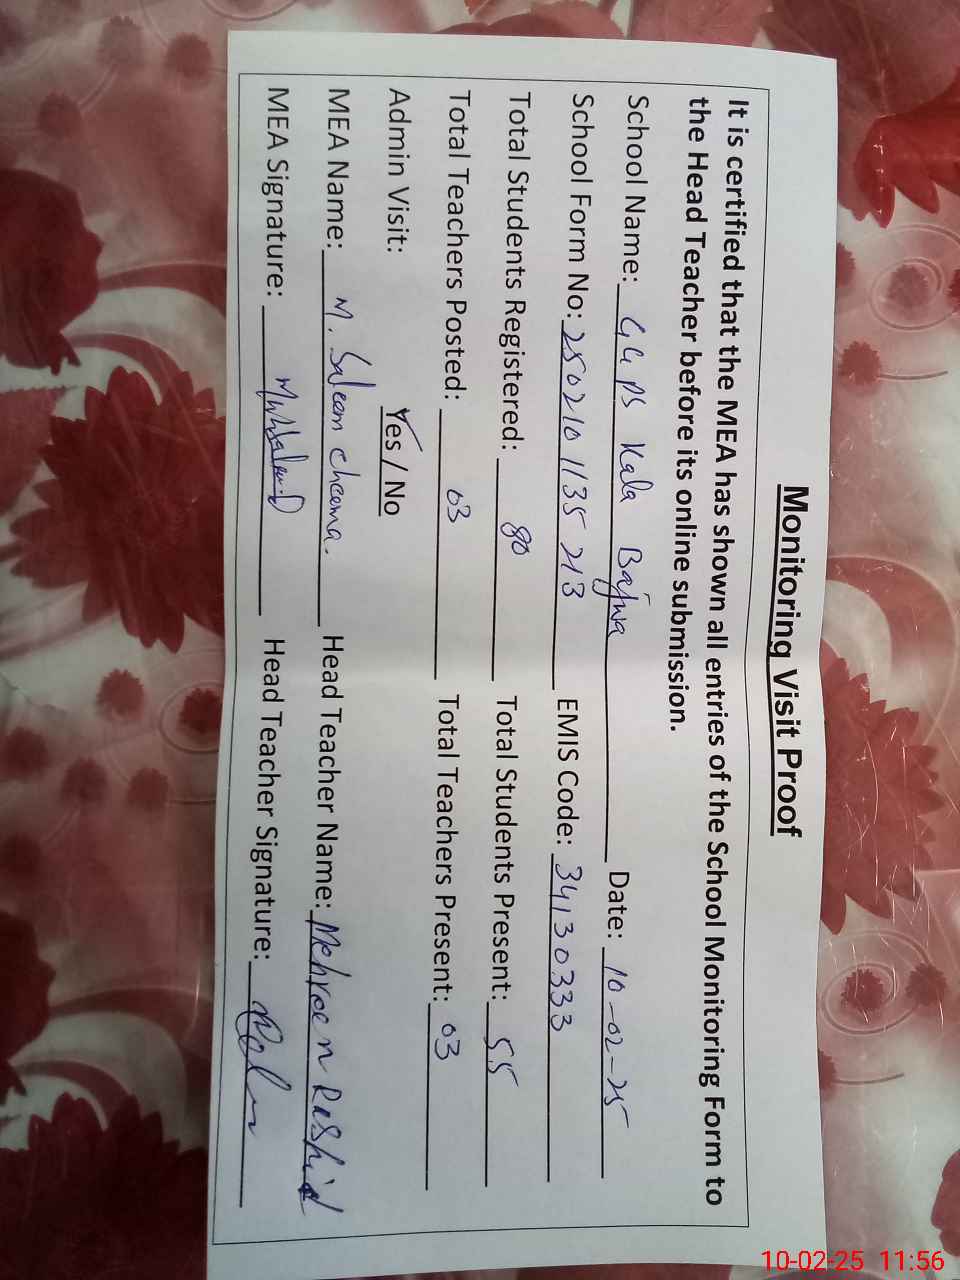 Monitoring Visit Proof
It is certified that the MEA has shown all entries of the School Monitoring Form to
the Head Teacher before its online submission.
School Name: GGPS Kala Bajwa Date: 10-02-25
School Form No: 250210 1135 213 EMIS Code: 34130333
Total Students Registered: 80 Total Students Present: 55
Total Teachers Posted: 03 Total Teachers Present: 03
Admin Visit: Yes / No
MEA Name: M. Saleem cheema. Head Teacher Name: Mehreen Rashid
MEA Signature: Head Teacher Signature:
10-02-25 11:56